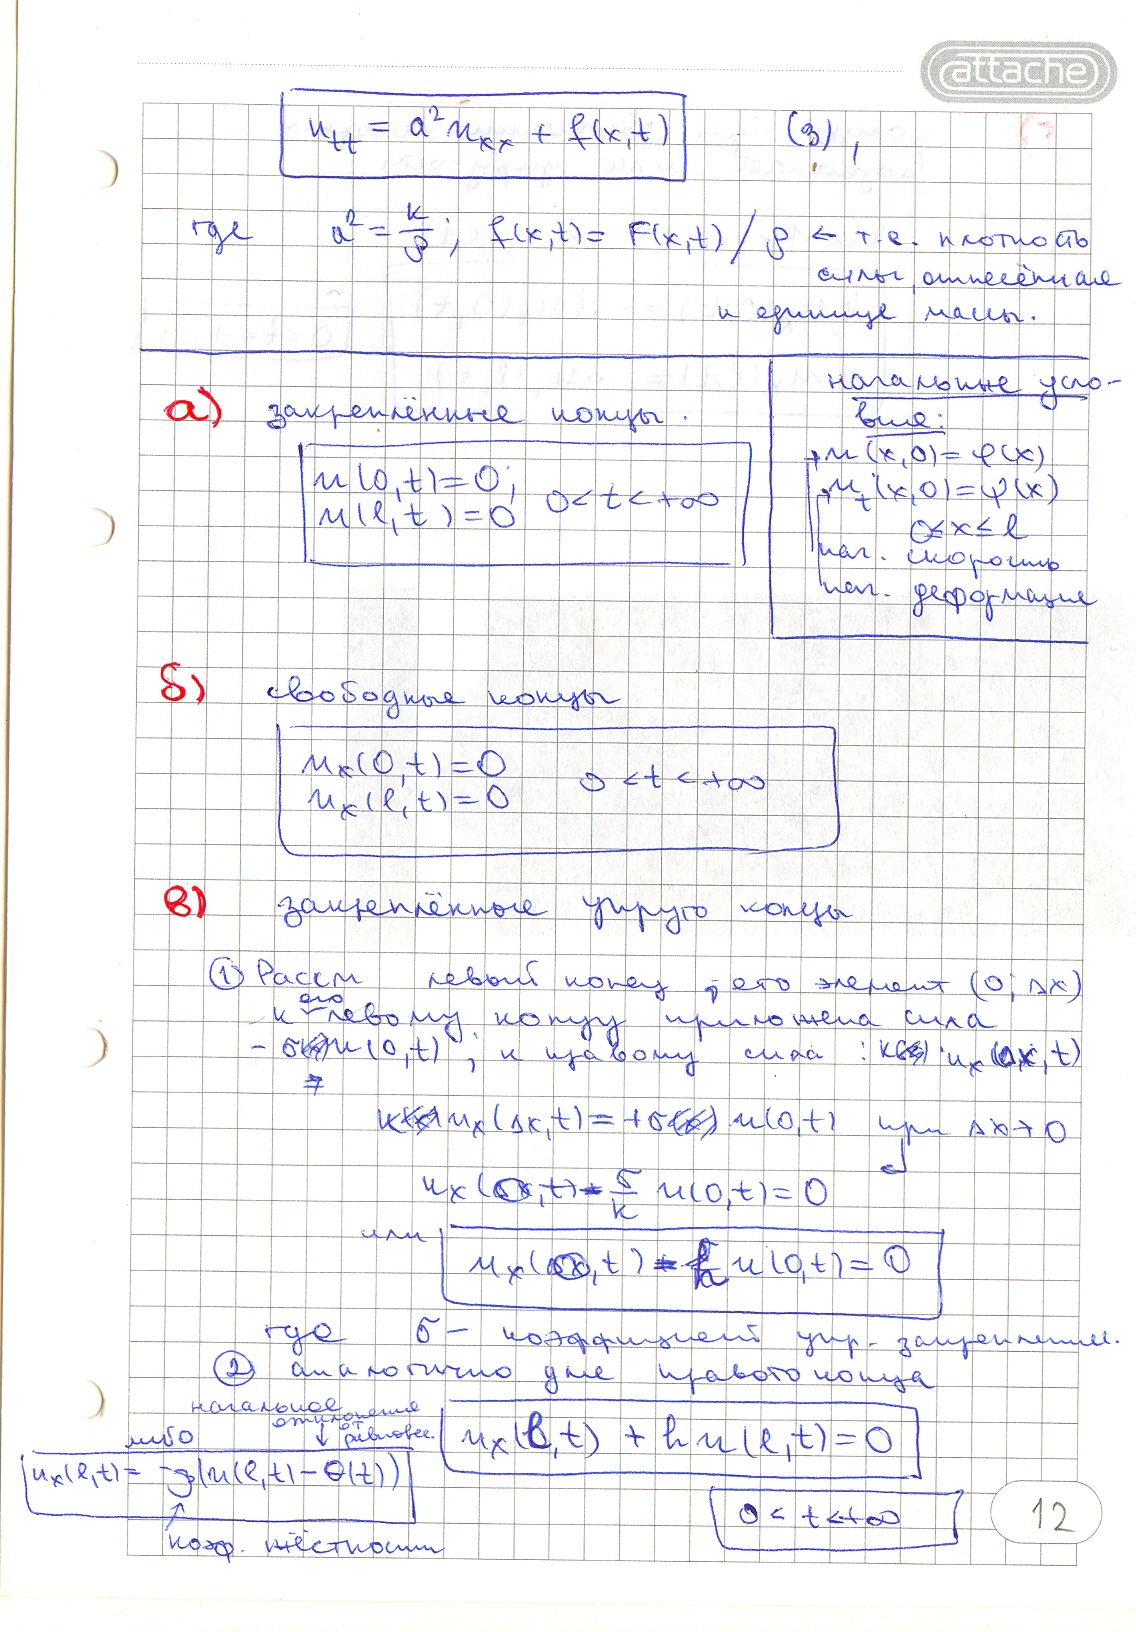 attache
u_tt = a² u_xx + f(x,t) (3),
где a² = k/ρ ; f(x,t) = F(x,t) / ρ ← т.е. плотность
силы, отнесённая
к единице массы.
начальные усло-
вия:
u(x,0) = φ(x)
u_t(x,0) = ψ(x)
0 ≤ x ≤ l
нач. скорость
нач. деформация
а) закреплённые концы.
u(0,t) = 0;
u(l,t) = 0 0 < t < +∞
б) свободные концы
u_x(0,t) = 0
u_x(l,t) = 0 0 < t < +∞
в) защеплённые упруго концы
① Рассм левый конец, его элемент (0; Δx)
к его левому концу приложена сила
- σ u(0,t) ; к правому сила : k · u_x(Δx,t)
k u_x(Δx,t) = +σ u(0,t) при Δx→0
u_x(0,t) - σ/k u(0,t) = 0
или u_x(0,t) - h u(0,t) = 0
где σ — коэффициент упр. защепления.
② аналогично для правого конца
u_x(l,t) + h u(l,t) = 0
начальное
отклонение
от
равновес.
либо
u_x(l,t) = -g(u(l,t) - θ(t))
коэф. жёсткости
0 < t < +∞
12